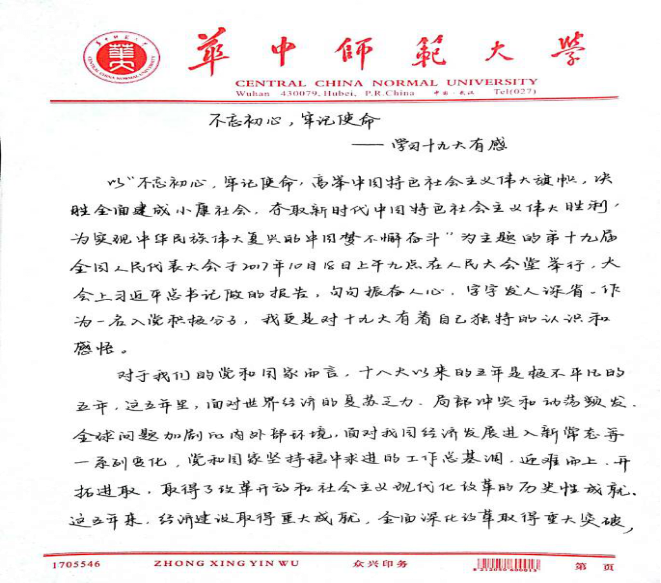 華中師範大学
CENTRAL CHINA NORMAL UNIVERSITY
Wuhan 430079, Hubei, P.R.China 中国·武汉 Tel(027)
不忘初心，牢记使命
——学习十九大有感
以“不忘初心，牢记使命，高举中国特色社会主义伟大旗帜，决
胜全面建成小康社会，夺取新时代中国特色社会主义伟大胜利，
为实现中华民族伟大复兴的中国梦不懈奋斗”为主题的第十九届
全国人民代表大会于2017年10月18日上午九点在人民大会堂举行，大
会上习近平总书记做的报告，句句振奋人心，字字发人深省。作
为一名入党积极分子，我更是对十九大有着自己独特的认识和
感悟。
对于我们的党和国家而言，十八大以来的五年是极不平凡的
五年，这五年里，面对世界经济的复苏乏力、局部冲突和动荡频发、
全球问题加剧的内外部环境，面对我国经济发展进入新常态等
一系列变化，党和国家坚持稳中求进的工作总基调，迎难而上，开
拓进取，取得了改革开放和社会主义现代化改革的历史性成就。
这五年来，经济建设取得重大成就，全面深化改革取得重大突破，
1705546 ZHONG XING YIN WU 众兴印务 第 页